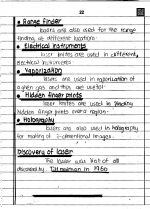 22
• Range finder
lasers are also used for the range
finding at different locations.
• Electrical instruments
laser knives are used in
electrical instruments
• Vaporization
lasers are used in vaporization of
a given gas and this are useful.
• Hidden finger prints
laser knives are used in finding
hidden finger prints over a region.
• Holography
lasers are also used in holography
for making of 3-dimentional images.
Discovery of laser
The laser was first of all
discovered by T.H maiman in 1960